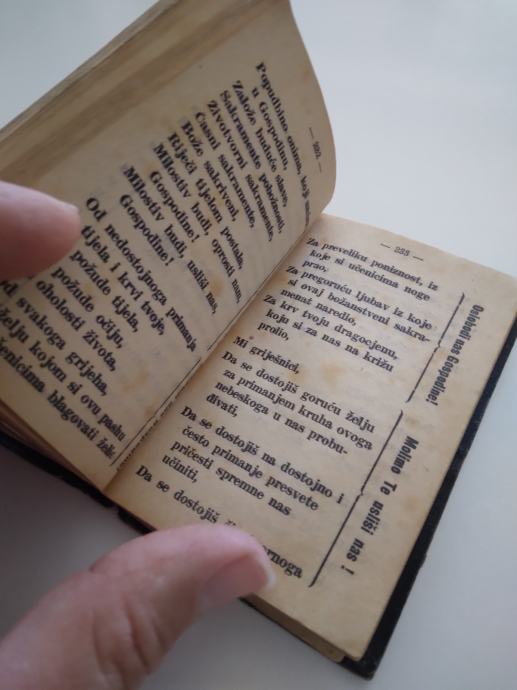 Popudbino onima, koji
u Gospodinu,
Založe buduće slave,
Sakramente pobožnosti,
Životvorni sakramente,
Časni sakramente,
Bože sakriveni,
Riječi tijelom postala,
Milostiv budi, oprosti nam,
Gospodine!
Milostiv budi, usliši nas,
Gospodine!
Od nedostojnoga primanja
tijela i krvi tvoje,
požude tijela,
požude očiju,
oholosti života,
svakoga grijeha,
želju kojom si ovu pashu
blagovati
— 235 —
Za preveliku poniznost, iz
koje si učenicima noge
prao,
Za pregoruću ljubav iz koje
si ovaj božanstveni sakra-
menat naredio,
Za krv tvoju dragocjenu,
koju si za nas na križu
prolio,
Oslobodi nas Gospodine!
Mi griješnici,
Da se dostojiš goruću želju
za primanjem kruha ovoga
nebeskoga u nas probu-
đivati,
Da se dostojiš na dostojno i
često primanje presvete
pričesti spremne nas
učiniti,
Da se dostojiš
Molimo Te usliši nas!